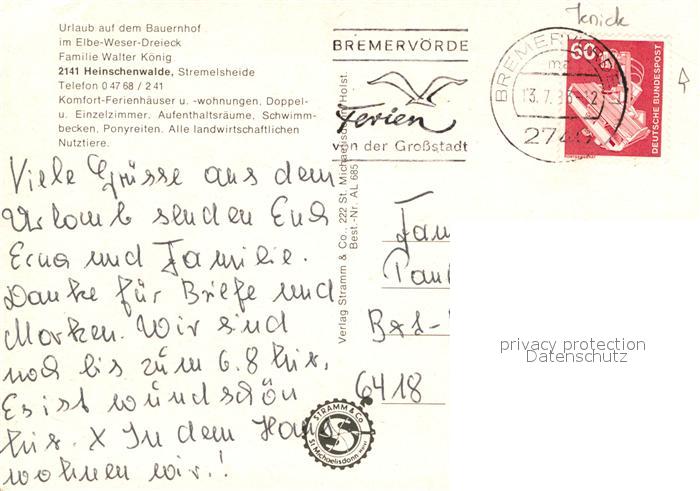 Knick
Urlaub auf dem Bauernhof
im Elbe-Weser-Dreieck
Familie Walter König
2141 Heinschenwalde, Stremelsheide
Telefon 0 47 68 / 2 41
Komfort-Ferienhäuser u. -wohnungen, Doppel-
u. Einzelzimmer. Aufenthaltsräume, Schwimm-
becken, Ponyreiten. Alle landwirtschaftlichen
Nutztiere.
BREMERVÖRDE
Ferien
von der Großstadt
BREMERVÖRDE
13.7. 12
60
DEUTSCHE BUNDESPOST
Viele Grüsse aus dem
Urlaub senden Euch
Erna und Familie.
Danke für Briefe und
Marken. Wir sind
noch bis zum 6.8 hir.
Es ist wundschön
hir. X In dem Haus
wohnen wir.!
Verlag Stramm & Co., 222 St. Michaelisdonn/Holst.
Best.-Nr. AL 685
Fam
Paul
6418
privacy protection
Datenschutz
STRAMM & Co
St Michaelisdonn